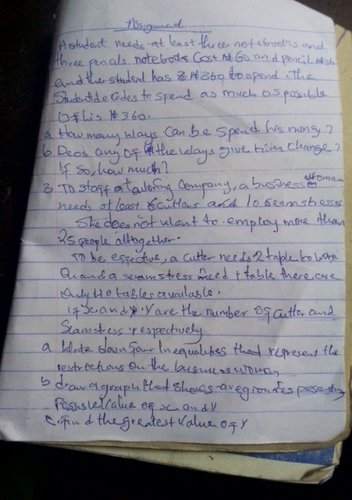 Assignment
A student needs at least three notebooks and
three pencils notebooks cost ₦60 and pencil
and the student has ₦360 to spend. The
student decides to spend as much as possible
of his ₦360.
a How many ways can be spend his money?
b Deos any of the ways give him change?
If so, how much?
3. To staff a tailoring company, a business woman
needs at least 5 cutters and 10 seamstress
She does not want to employ more than
25 people alltogther.
To be effective, a cutter needs 2 table to work
and a seamstress need 1 table there are
only 40 tables available.
if x and y are the number of cutter and
seamstress respectively
a Write down four Inequalities that represent the
restrictions on the business woman
b draw a graph that shows
Possible value of x and y
c. find the greatest value of y